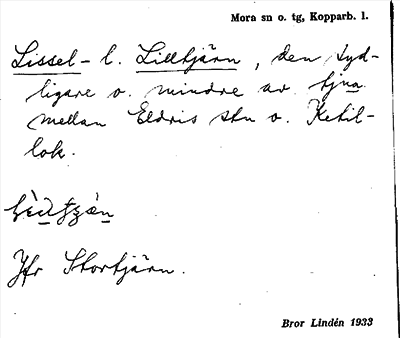 Mora sn o. tg, Kopparb. l.
Lissel- l. Lilltjärn, den syd-
ligare o. mindre av tjna
mellan Eldris stn o. Ketil-
lok.
Jfr Stortjärn.
Bror Lindén 1933